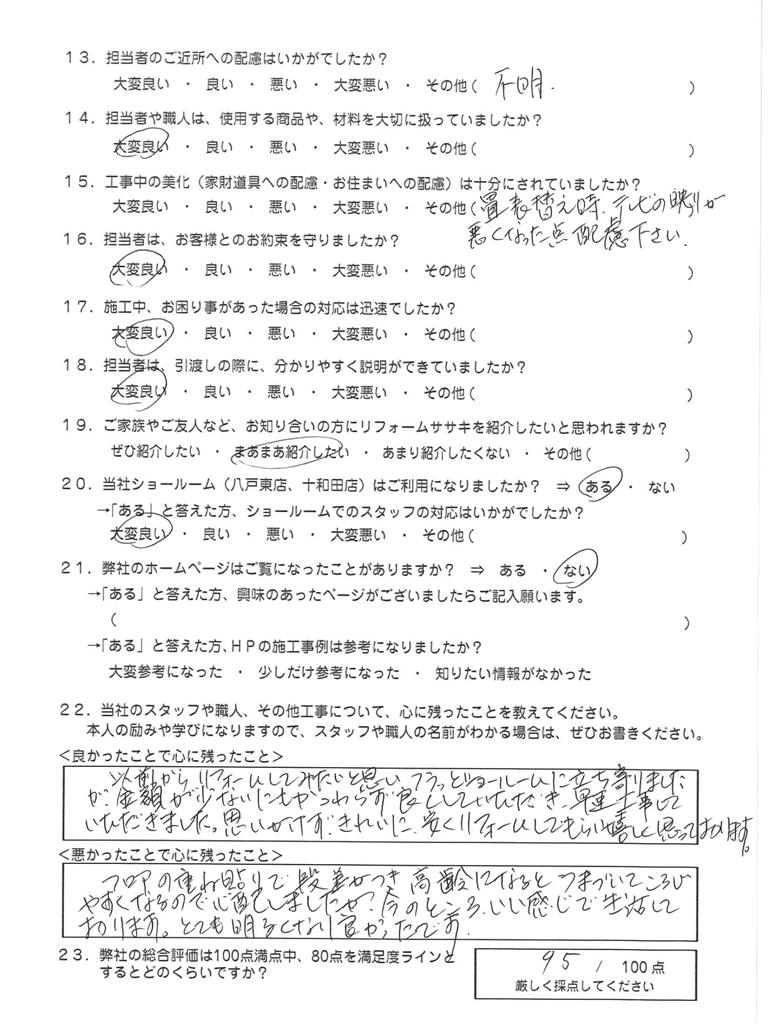 １３．担当者のご近所への配慮はいかがでしたか？
大変良い ・ 良い ・ 悪い ・ 大変悪い ・ その他（ 不明． ）
１４．担当者や職人は、使用する商品や、材料を大切に扱っていましたか？
大変良い ・ 良い ・ 悪い ・ 大変悪い ・ その他（ ）
１５．工事中の美化（家財道具への配慮・お住まいへの配慮）は十分にされていましたか？
大変良い ・ 良い ・ 悪い ・ 大変悪い ・ その他（ 畳表替え時、テレビの映りが
悪くなった点配慮下さい．
１６．担当者は、お客様とのお約束を守りましたか？
大変良い ・ 良い ・ 悪い ・ 大変悪い ・ その他（ ）
１７．施工中、お困り事があった場合の対応は迅速でしたか？
大変良い ・ 良い ・ 悪い ・ 大変悪い ・ その他（ ）
１８．担当者は、引渡しの際に、分かりやすく説明ができていましたか？
大変良い ・ 良い ・ 悪い ・ 大変悪い ・ その他（ ）
１９．ご家族やご友人など、お知り合いの方にリフォームササキを紹介したいと思われますか？
ぜひ紹介したい ・ まあまあ紹介したい ・ あまり紹介したくない ・ その他（ ）
２０．当社ショールーム（八戸東店、十和田店）はご利用になりましたか？ ⇒ ある ・ ない
→「ある」と答えた方、ショールームでのスタッフの対応はいかがでしたか？
大変良い ・ 良い ・ 悪い ・ 大変悪い ・ その他（ ）
２１．弊社のホームページはご覧になったことがありますか？ ⇒ ある ・ ない
→「ある」と答えた方、興味のあったページがございましたらご記入願います。
（ ）
→「ある」と答えた方、ＨＰの施工事例は参考になりましたか？
大変参考になった ・ 少しだけ参考になった ・ 知りたい情報がなかった
２２．当社のスタッフや職人、その他工事について、心に残ったことを教えてください。
本人の励みや学びになりますので、スタッフや職人の名前がわかる場合は、ぜひお書きください。
＜良かったことで心に残ったこと＞
以前からリフォームしてみたいと思い フラッとショールームに立ち寄りました
が、金額が少ないにもかかわらず良くしていただき、早速工事して
いただきました。思いがけず、きれいに、安くリフォームしてもらい嬉しく思っております。
＜悪かったことで心に残ったこと＞
フロアの重ね貼りで段差がつき 高齢になると つまづいてころび
やすくなるので心配しましたが、今のところ、いい感じで生活して
おります。とても明るくなり良かったです．
２３．弊社の総合評価は100点満点中、80点を満足度ラインと
するとどのくらいですか？
９５ / 100点
厳しく採点してください